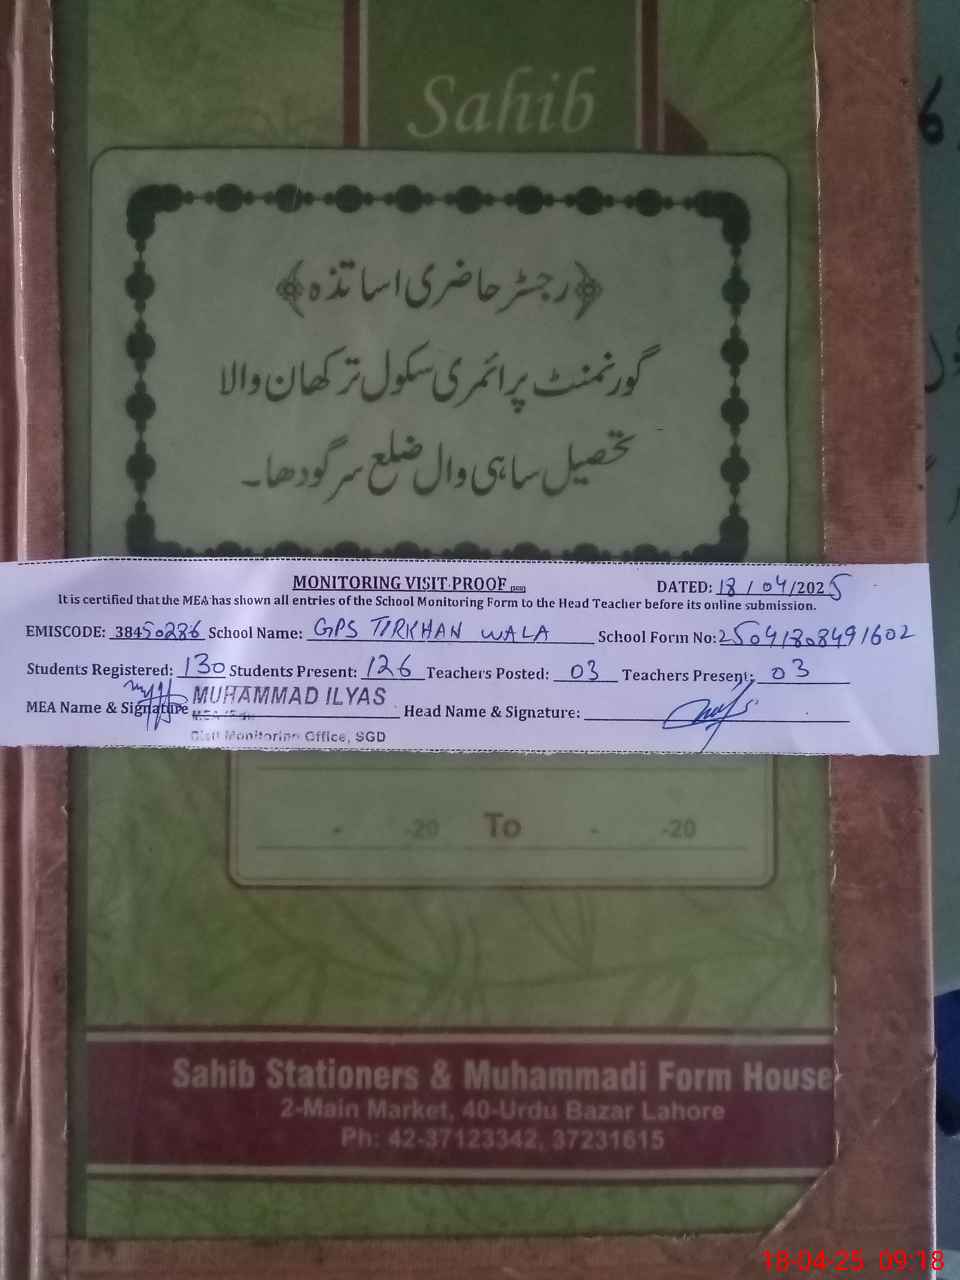 Sahib
﴿رجسٹر حاضری اساتذہ﴾
گورنمنٹ پرائمری سکول ترکھان والا
تحصیل ساہی وال ضلع سرگودھا۔
MONITORING VISIT PROOF
DATED: 18 / 04 /2025
It is certified that the MEA has shown all entries of the School Monitoring Form to the Head Teacher before its online submission.
EMISCODE: 38450286 School Name: GPS TIRKHAN WALA School Form No: 25041808491602
Students Registered: 130 Students Present: 126 Teachers Posted: 03 Teachers Present: 03
MEA Name & Signature MUHAMMAD ILYAS Head Name & Signature:
Monitoring Office, SGD
- -20 To - -20
Sahib Stationers & Muhammadi Form House
2-Main Market, 40-Urdu Bazar Lahore
Ph: 42-37123342, 37231615
18-04-25 09:18